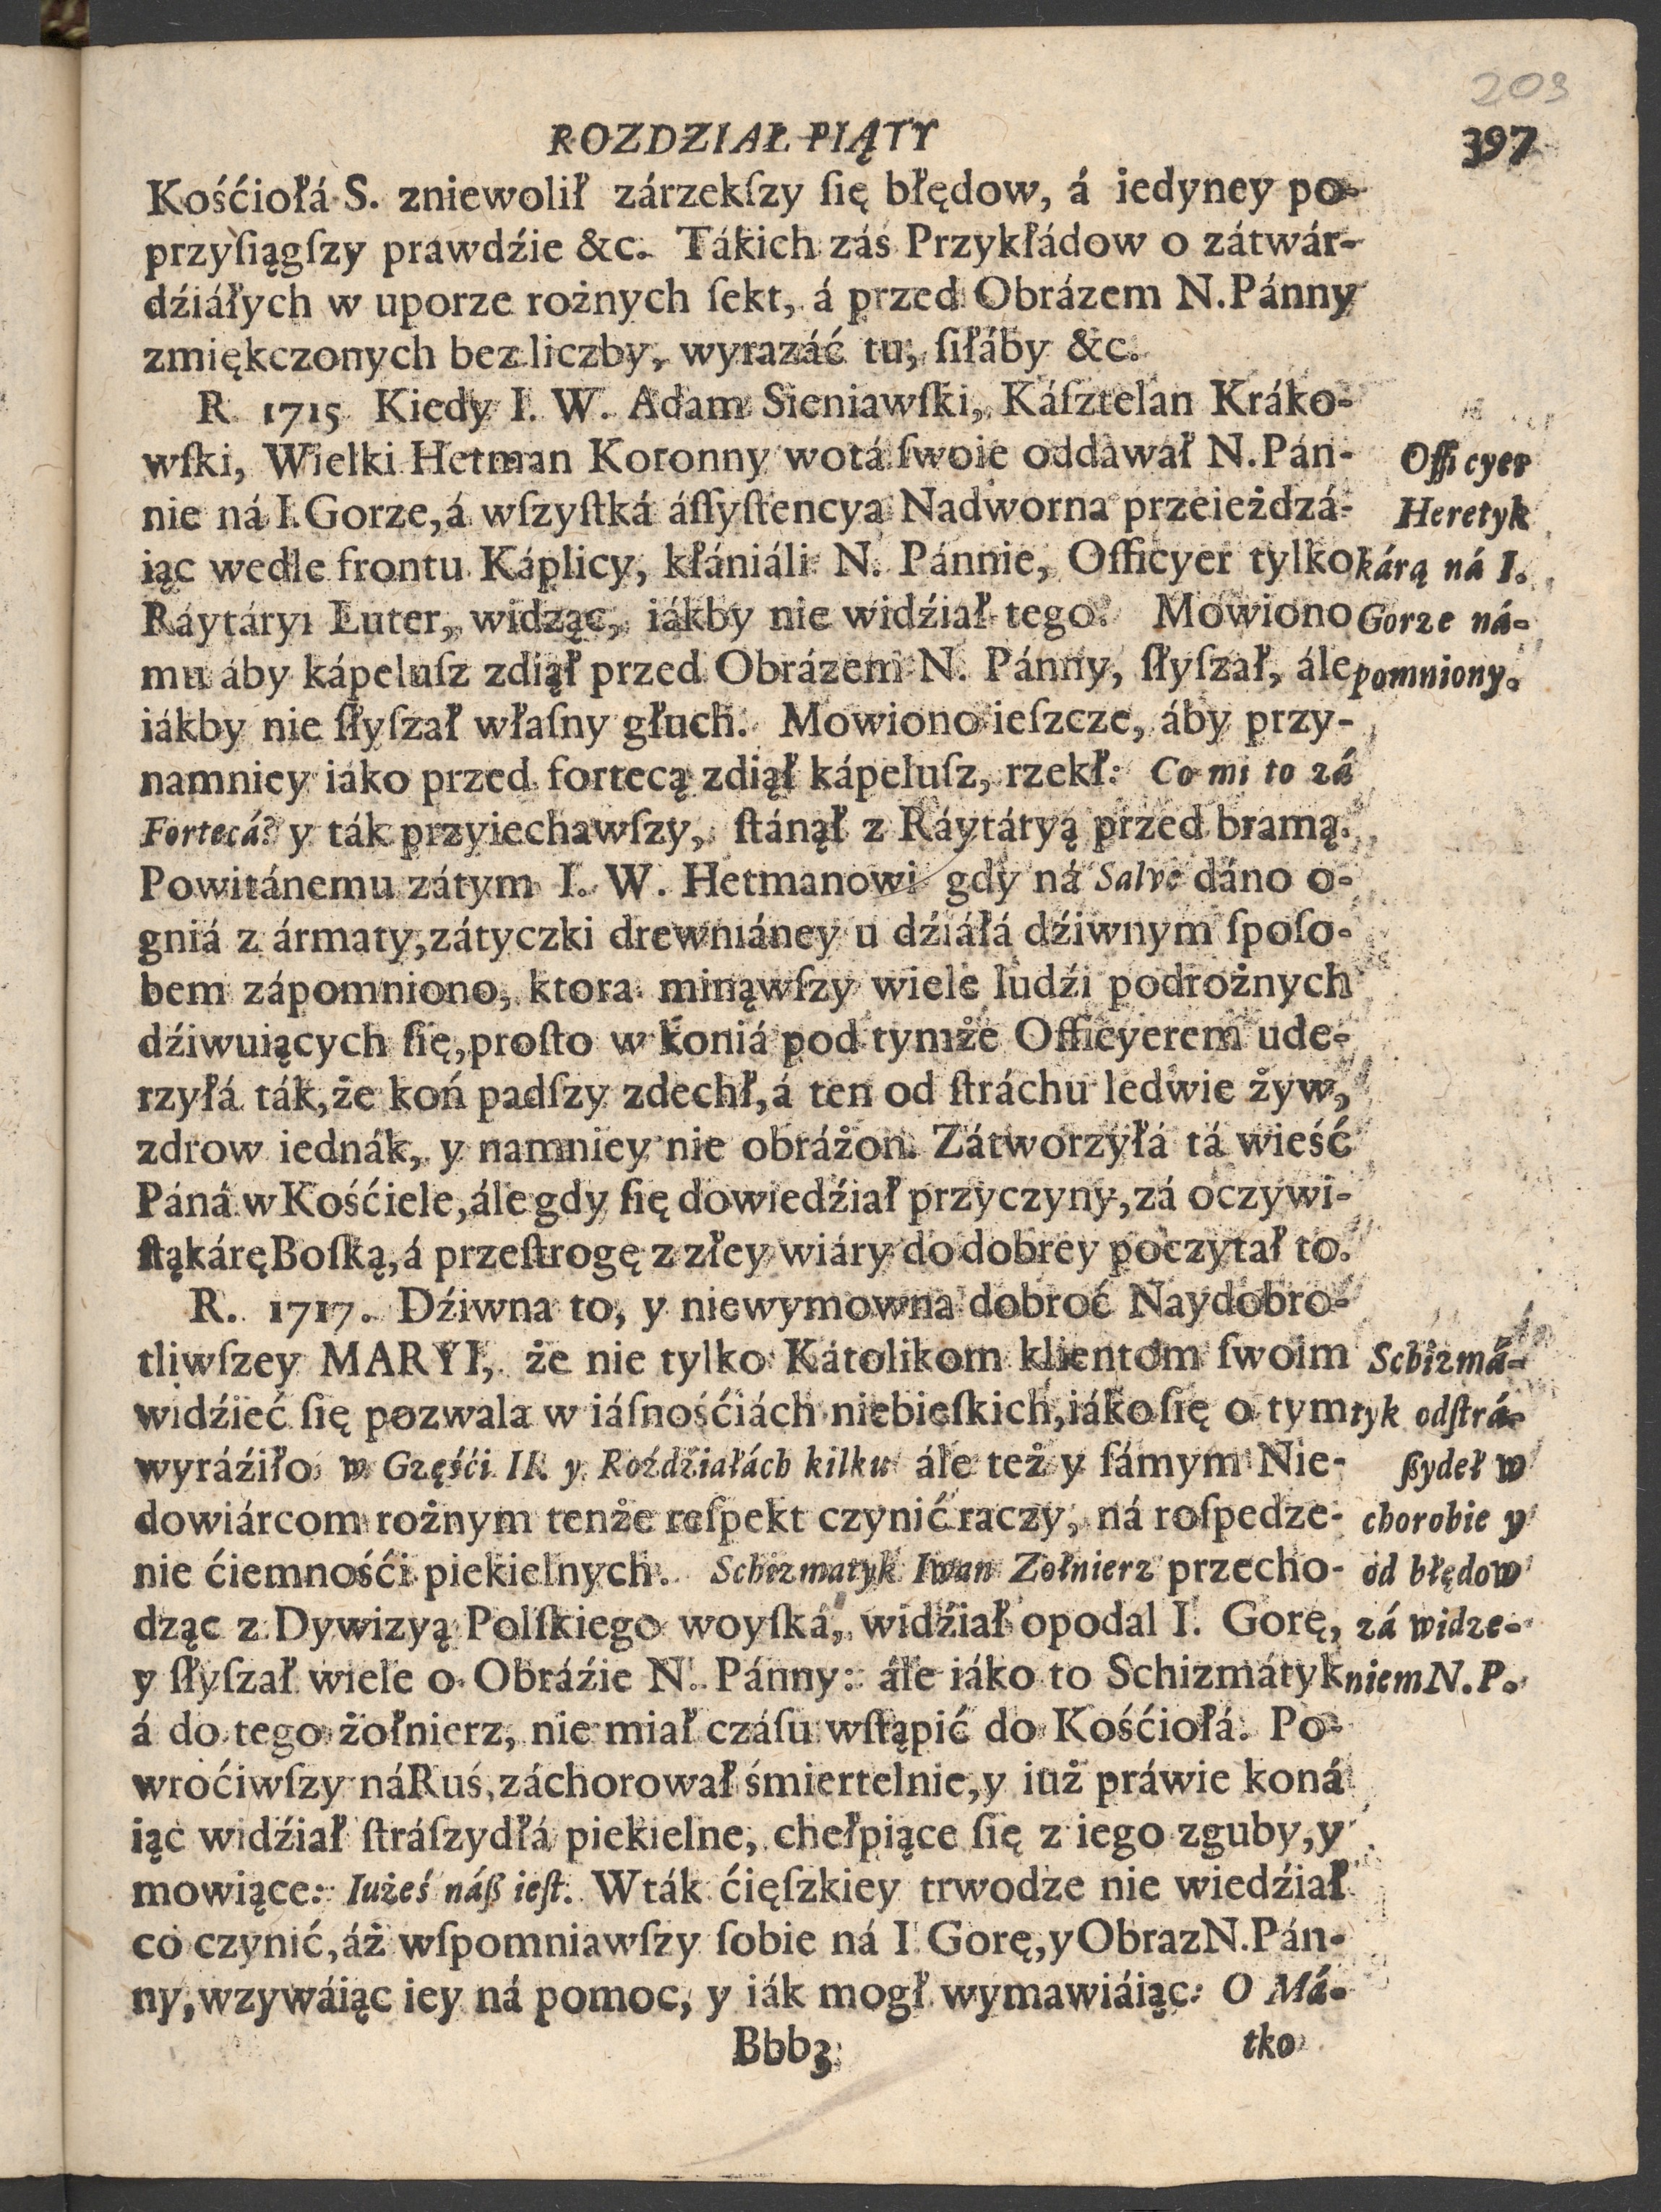 203
ROZDZIAŁ PIĄTY 397
Kośćiołá S. zniewolił zárzekſzy ſię błędow, á iedyney po-
przyſiągſzy prawdźie &c. Tákich zás Przykłádow o zátwár-
dźiáłych w uporze rożnych ſekt, á przed Obrázem N. Pánny
zmiękczonych bez liczby, wyrazáć tu, ſiłáby &c.
R 1715 Kiedy I. W. Adam Sieniawſki, Káſztelan Kráko-
wſki, Wielki Hetman Koronny wotá ſwoie oddawał N. Pán-
nie ná I. Gorze, á wſzyſtká áſſyſtencya Nadworna przeieżdzá-
iąc wedle frontu Káplicy, kłániáli N. Pánnie, Officyer tylko
Ráytáryi Luter, widząc, iákby nie widźiał tego. Mowiono
mu áby kápeluſz zdiął przed Obrázem N. Pánny, ſłyſzał, ále
iákby nie ſłyſzał właſny głuch. Mowiono ieſzcze, áby przy-
namniey iáko przed fortecą zdiął kápeluſz, rzekł: Co mi to zá
Fortecá? y ták przyiechawſzy, ſtánął z Ráytáryą przed bramą.
Powitánemu zátym I. W. Hetmanowi gdy ná Salve dáno o-
gniá z ármaty, zátyczki drewniáney u dźiáłá dźiwnym ſpoſo-
bem zápomniono, ktora minąwſzy wiele ludźi podrożnych
dźiwuiących ſię, proſto w koniá pod tymże Officyerem ude-
rzyłá ták, że koń padſzy zdechł, á ten od ſtráchu ledwie żyw,
zdrow iednák, y namniey nie obráżon. Zátworzyłá tá wieść
Páná w Kośćiele, ále gdy ſię dowiedźiał przyczyny, zá oczywi-
ſtą káręBoſką, á przeſtrogę z złey wiáry do dobrey poczytał to.
Officyer
Heretyk
kárą ná I.
Gorze ná-
pomniony.
R. 1717. Dźiwna to, y niewymowna dobroć Naydobro-
tliwſzey MARYI, że nie tylko Kátolikom klientom ſwoim
widźieć ſię pozwala w iáſnośćiách niebieſkich, iáko ſię o tym
wyráźiło w Częśći II. y Roźdźiałách kilku ále też y ſámym Nie-
dowiárcom rożnym tenże reſpekt czynić raczy, ná roſpedze-
nie ćiemnośći piekielnych. Schizmatyk Iwan Zołnierz przecho-
dząc z Dywizyą Polſkiego woyſká, widźiał opodal I. Gorę,
y ſłyſzał wiele o Obráźie N. Pánny: ále iáko to Schizmátyk
á do tego żołnierz, nie miał czáſu wſtąpić do Kośćiołá. Po-
wroćiwſzy náRuś, záchorował śmiertelnie, y iuż práwie koná
iąc widźiał ſtráſzydłá piekielne, chełpiące ſię z iego zguby, y
mowiące: Iużeś náß ieſt. Wták ćięſzkiey trwodze nie wiedźiał
co czynić, áż wſpomniawſzy ſobie ná I Gorę, y Obraz N. Pán-
ny, wzywáiąc iey ná pomoc, y iák mogł wymawiáiąc: O Má-
Schizmá-
tyk odſtrá-
ßydeł w
chorobie y
od błędow
zá widze-
niem N. P.
Bbb3 tko